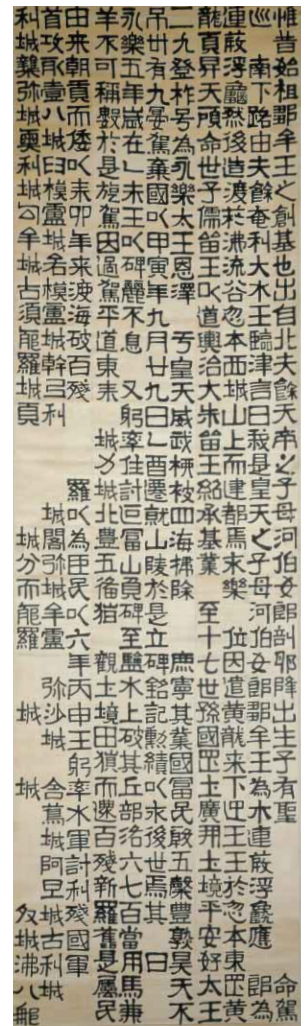 惟昔始祖鄒牟王之創基也出自北夫餘天帝之子母河伯女郎剖卵降出生子有聖 命
巡 南下路由夫餘奄利大水王臨津言曰我是皇天之子母河伯女郎鄒牟王為木連葭浮龜應 郎為
連葭浮龜然後造渡於沸流谷忽本西城山上而建都焉不樂 位因遣黃龍來下迎王王於忽本東罡黃
龍頁昇天顧命世子儒留王以道輿治大朱留王紹承基業 至十七世孫國罡上廣開土境平安好太王
二九登祚号為永樂太王恩澤 亏皇天威武柳被四海掃除 庶寧其業國富民殷五穀豐熟昊天不
弔卅有九晏駕棄國以甲寅年九月廿九日乙酉遷就山陵於是立碑銘記勲績以永後世焉其 曰
永樂五年歲在乙未王以碑麗不息 又躬率住討叵富山負碑至鹽水上破其丘部洛六七百當用馬兼
羊不可稱數於是旋駕因過駕平道東來 城力城北豐五備猶 觀土境田獵而還百殘新羅舊是屬民
由來朝貢而倭以耒卯年來渡海破百殘 羅以為臣民以六年丙申王躬率水軍討利殘國軍
首攻取壹八城臼模盧城各模盧城幹弖利 城閣弥城牟盧 弥沙城 舍蔦城阿旦城古利城
利城雜弥城奧利城勾牟城古須能羅城頁 城分而能羅 城 城 㕛城沸八那